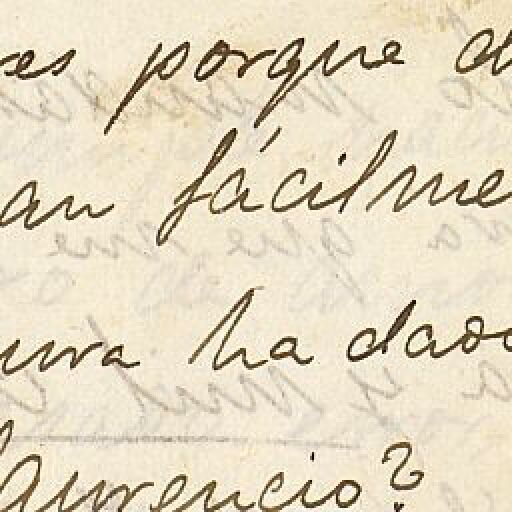 res porque d
an fácilme
ura ha dado
Laurencio?